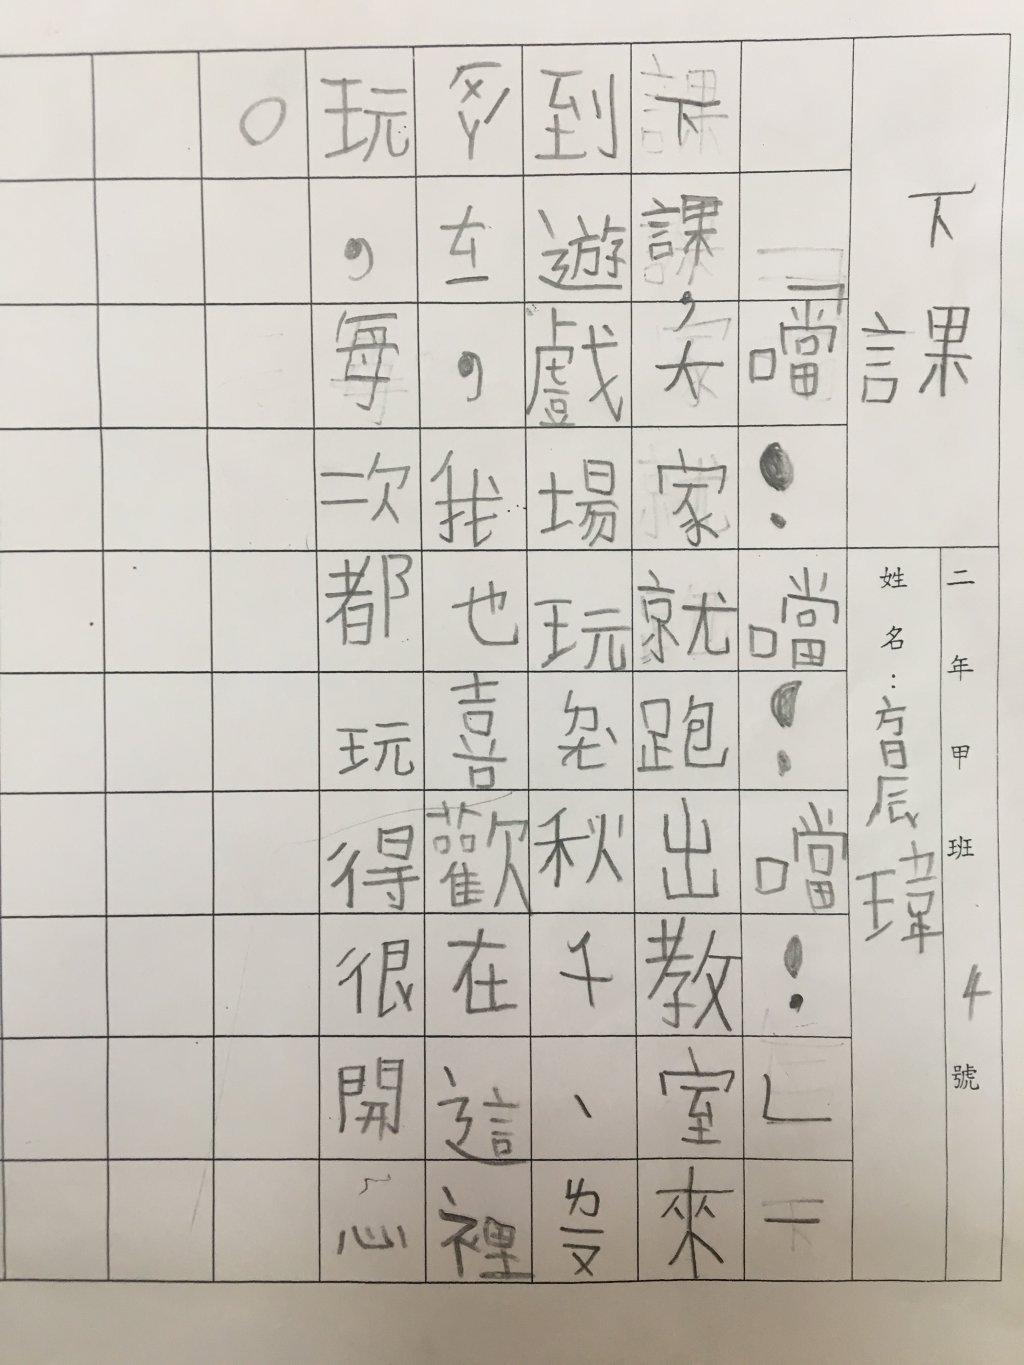 下課
二年甲班 4號
姓名: 瑋
「噹!噹!噹!」一
下課,大家就跑出教室來
到遊戲場玩 秋千、ㄌㄧㄡ
ㄏㄨㄚˊㄊㄧ,我也喜歡在這裡
玩,每次都玩得很開心
。